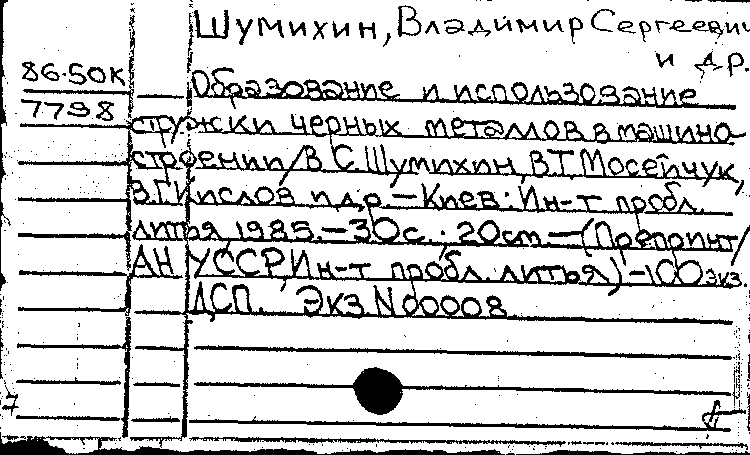 Шумихин, Владимир Сергеевич
и др.
86-50К
7798
Образование и использование
стружки черных металлов в машино-
строении/В.С.Шумихин, В.Т.Мосейчук,
В.Г.Кислов и др. — Киев: Ин-т пробл.
литья, 1985. — 30 с.; 20 см. — (Препринт/
АН УССР, Ин-т пробл. литья) - 100 экз.
ДСП. Экз. N 00008
7